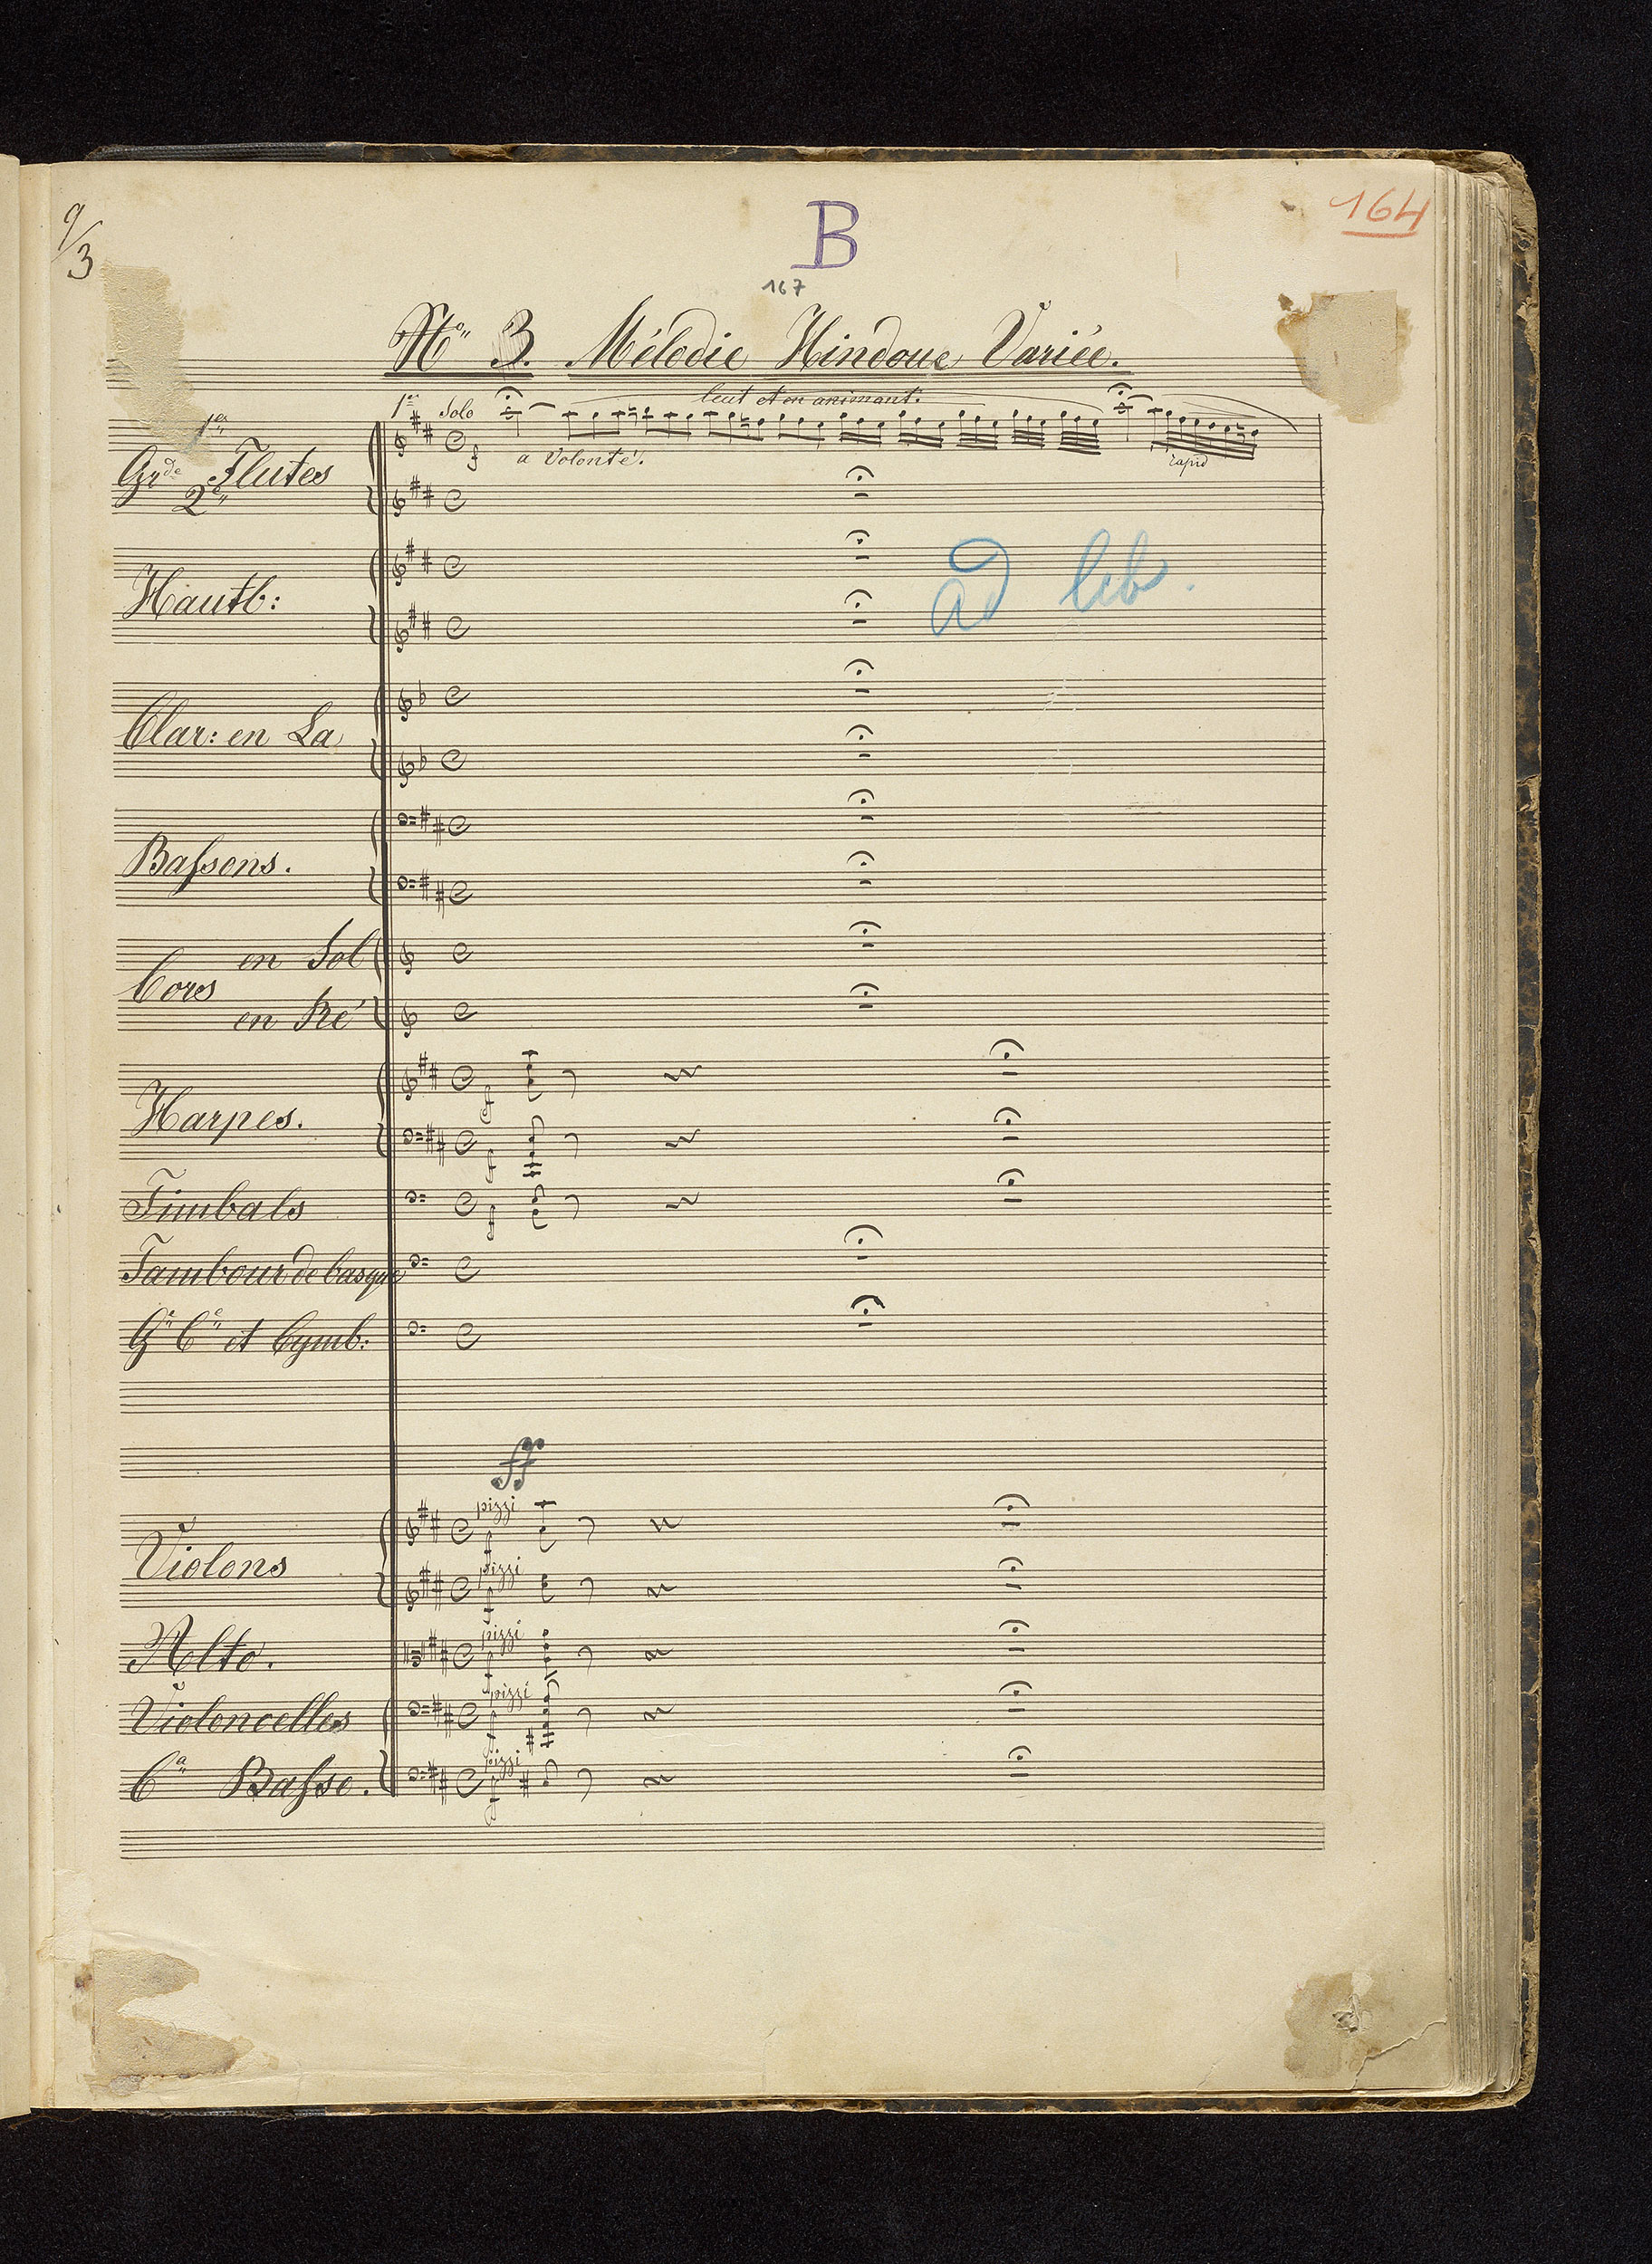 9/3
B
164
167
No 3. Mélodie Hindoue Variée.
lent et en animant.
1er Solo
1er
f
a Volonté.
rapid
Grde Flutes
2e
ad lib.
Hautb:
Clar: en La
Bassons.
en Sol
Cors
en Ré
Harpes.
ff
f
Timbals
f
Tambour de basque
Gr Ce et Cymb:
ff
pizzi
f
Violons
pizzi
f
Alto.
pizzi
f
Violoncelles
pizzi
f
Ca Basse.
pizzi
f